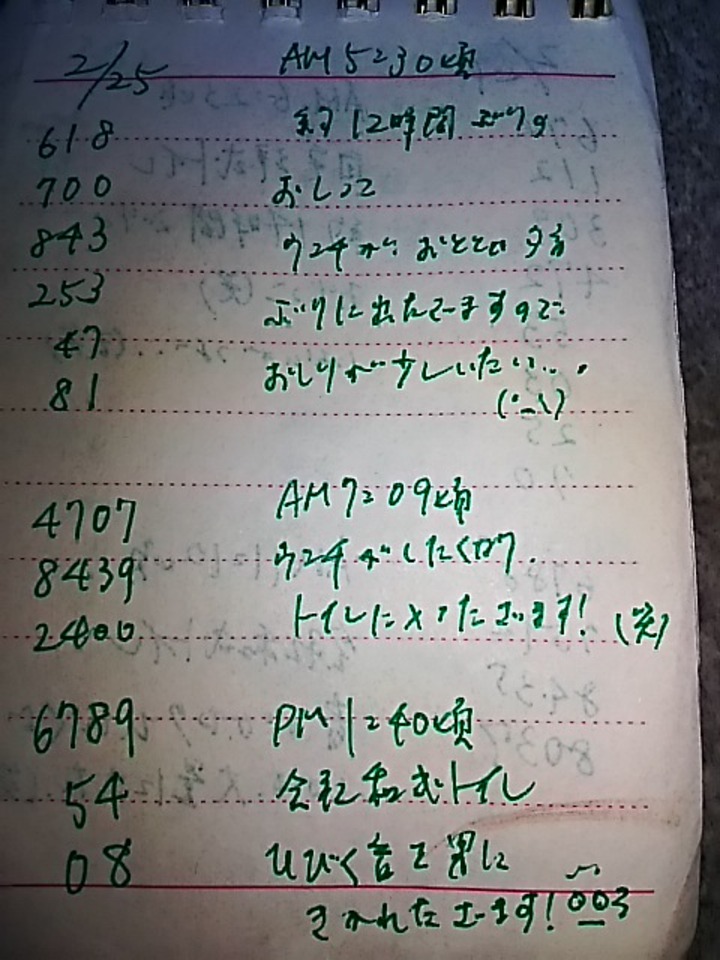 2/25 AM5:30頃
618 約12時間ぶりの
700 おしっこ
843 ウンチが おととい
253 ぶりに出たてーますので
47 おしりが少しいたい...
81
4707 AM7:09頃
8439 ウンチがしたくなり
2400 トイレに入ったさいます! (笑)
6789 PM1:40頃
54 会社和式トイレ
08 ひびく音を男に
きかれたさーます!003